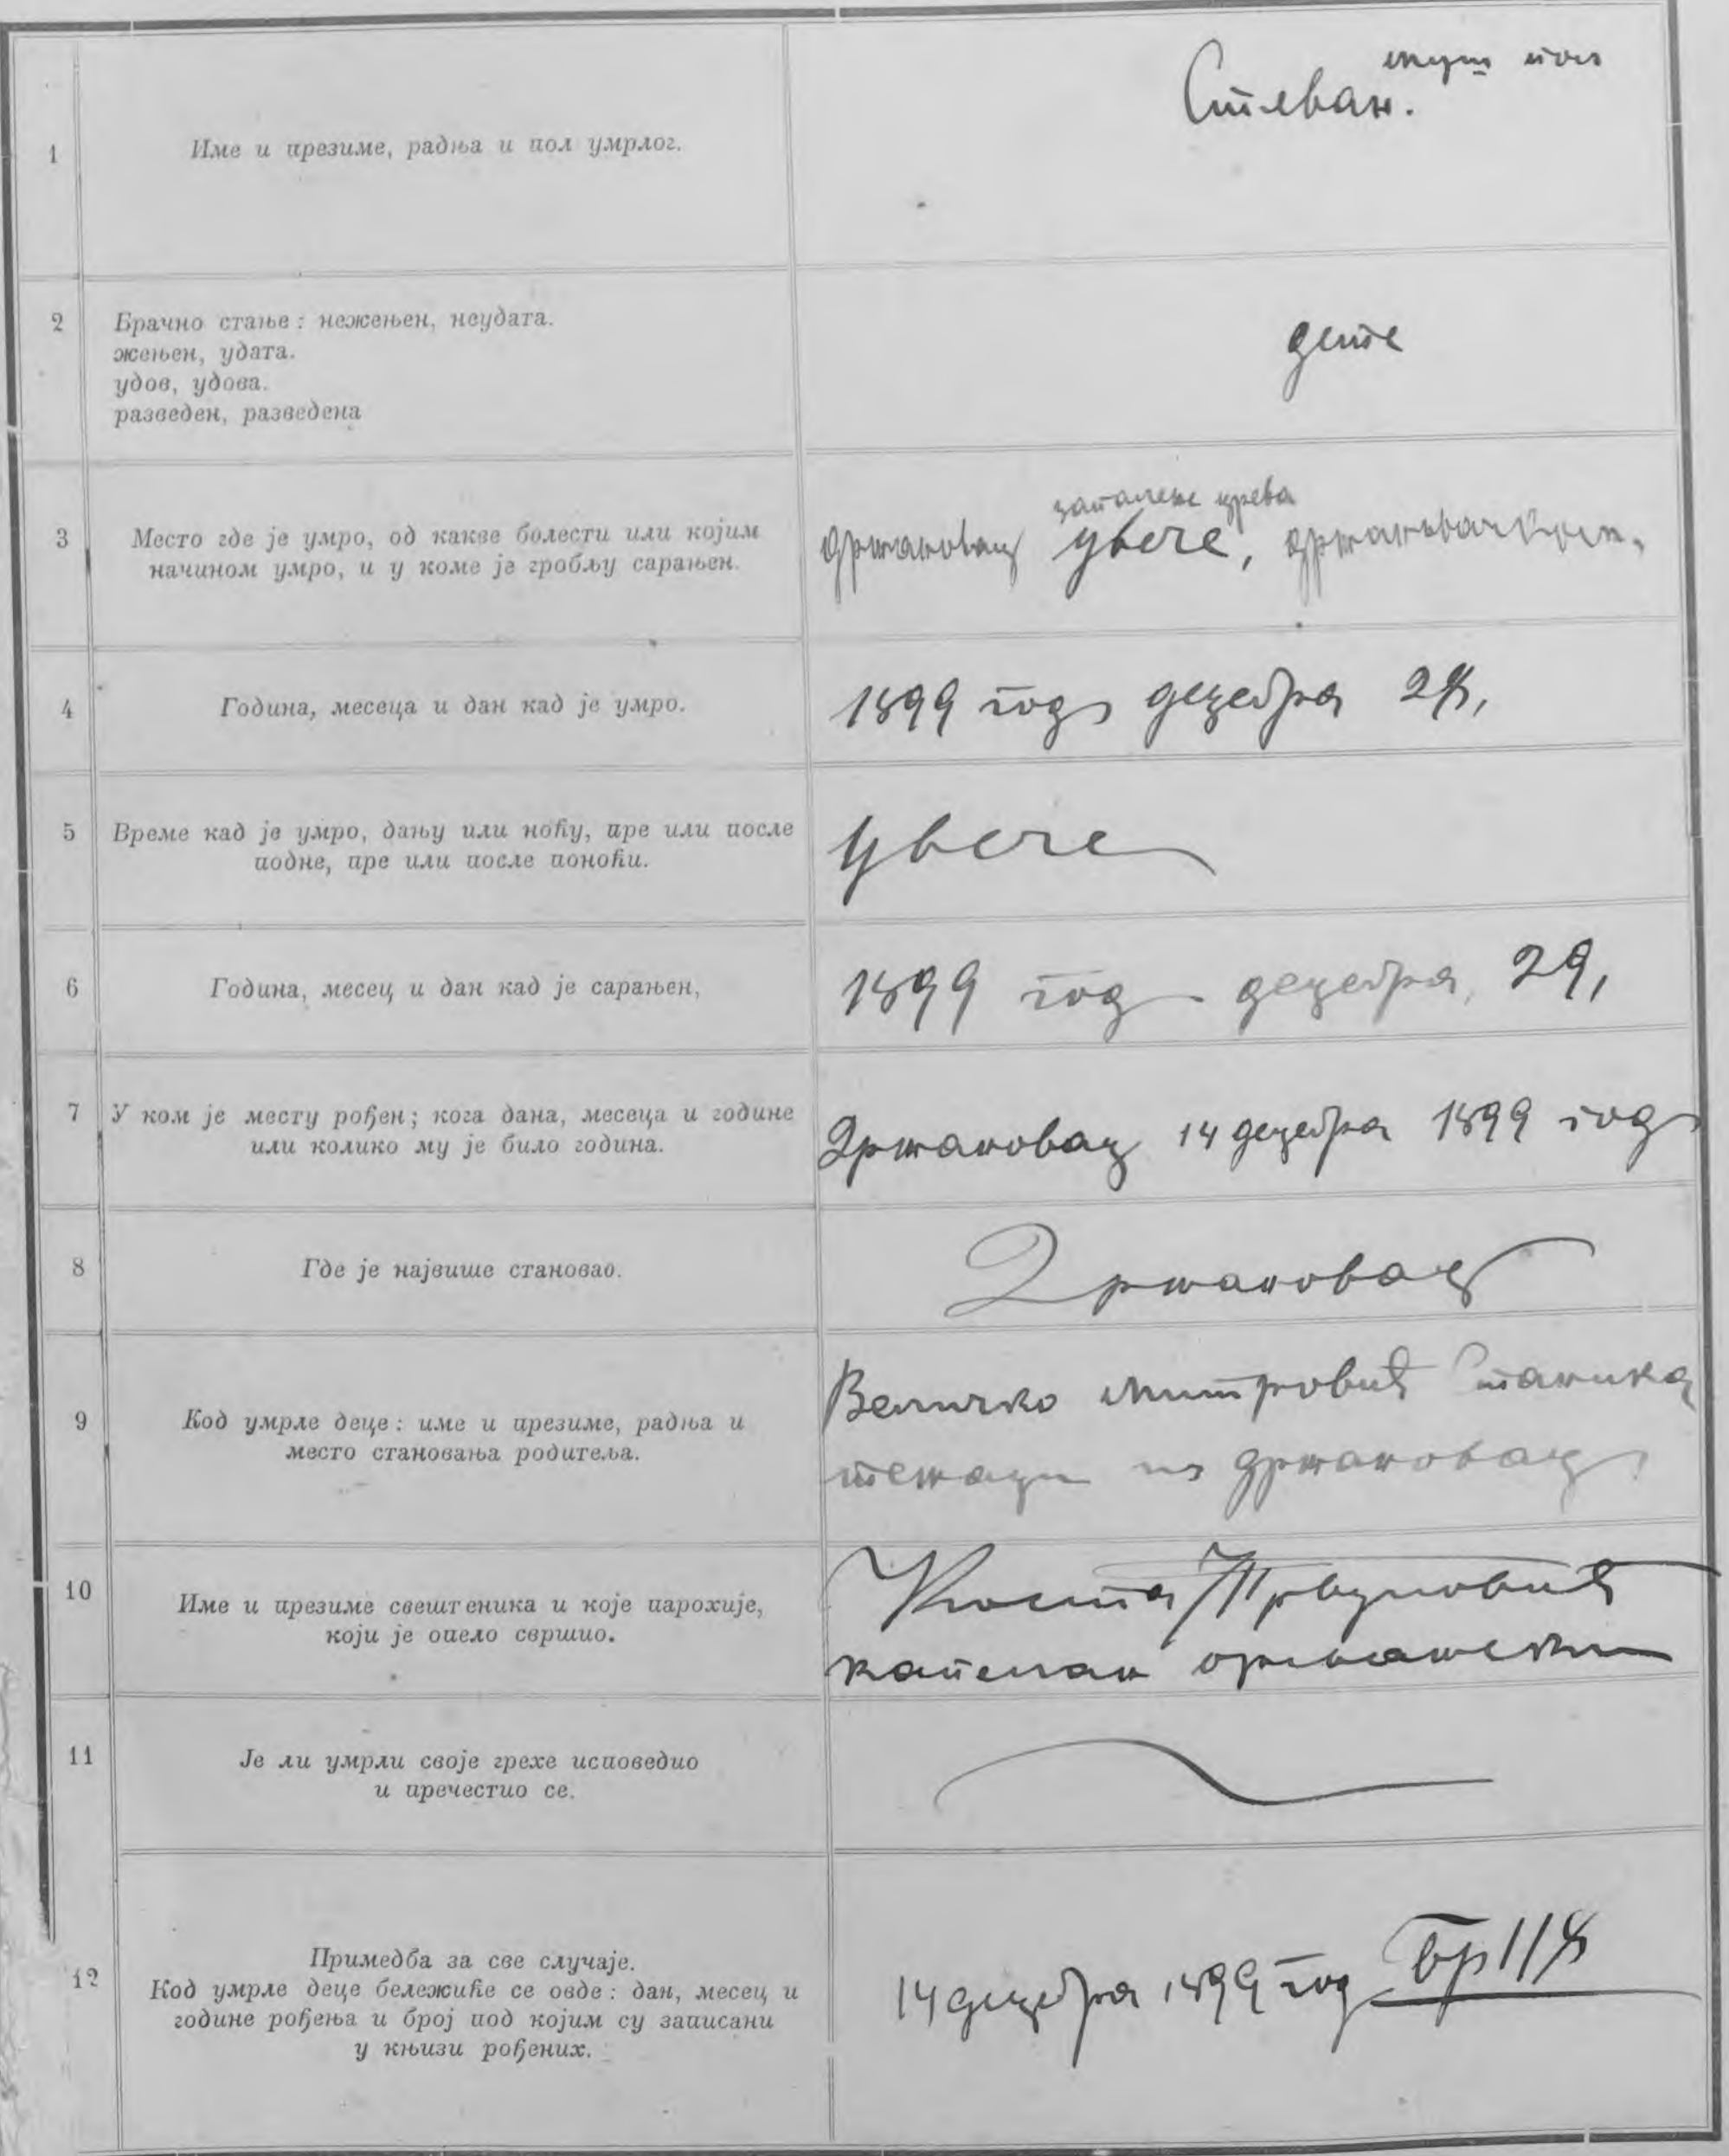 1
Име и презиме, радња и пол умрлог.
муш пол
Стеван.
2
Брачно стање: нежењен, неудата.
жењен, удата.
удов, удова.
разведен, разведена
дете
3
Место где је умро, од какве болести или којим
начином умро, и у коме је гробљу сарањен.
запалење црева
држановац увече,
4
Година, месеца и дан кад је умро.
1899 год децебра 28,
5
Време кад је умро, дању или ноћу, пре или после
подне, пре или после поноћи.
увече
6
Година, месец и дан кад је сарањен,
1899 год децебра, 29,
7
У ком је месту рођен; кога дана, месеца и године
или колико му је било година.
Држановац 14 децебра 1899 год
8
Где је највише становао.
Држановац
9
Код умрле деце: име и презиме, радња и
место становања родитеља.
Величко Митровић Станика
тежаци из држановац
10
Име и презиме свештеника и које парохије,
који је опело свршио.
Коста
капелан
11
Је ли умрли своје грехе исповедио
и пречестио се.
12
Примедба за све случаје.
Код умрле деце бележиће се овде: дан, месец и
године рођења и број под којим су записани
у књизи рођених.
14 децебра 1899 год бр 118